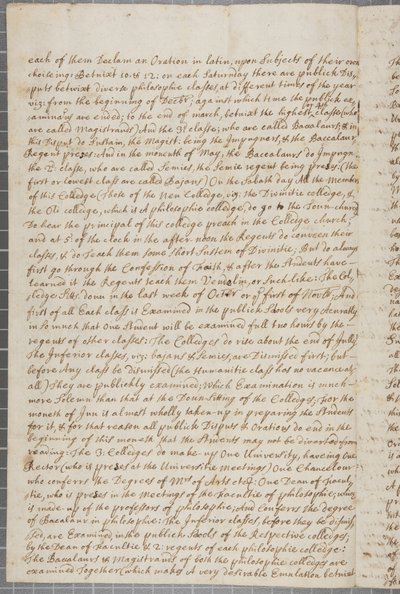 each of them Declam an Oration in latin, upon Subjects of their own
choiceing: Betwixt 10 & 12: on each Saturday there are publick Dis-
puts betwixt diverse philosophie classes, at different times of the year
viz: from the beginning of Decbr; against which time the publick ex-
aminauns are ended; to the end of march, betwixt the highest classe (who
or 4th
are called Magistrands) And the 3d classe, who are called Baccalaurs; & in
this Disput do Sustain, the Magist: being the Impugners, & the Baccalaur
Regent preses: And in the moneth of May, the Baccalaurs do Impugn
the 2d classe, who are called Semies, the Semie regent being preses: (The
first or lowest class are called Bajans) On the Sabath day All the Members
of this Colledge (Those of the New Colledge, viz: the Divinitie colledge, &
the Old colledge, which is A philosophie colledge, do go to the Town-church)
To hear the principal of this colledge preach in the Colledge church,
and at 5 of the clock in the after noon the Regents do conveen their
classes, & do Teach them some Short System of Divinitie, But do always
first go through the Confession of Faith, & after the Students have
Learned it the Regents teach them or Such-like: The Col-
ledge Sits down in the last week of Octbr or ye first of Novbr; And
first of all Each class is Examined in the publick Schools very Accuratly
in so much that One Student will be examined full two hours by the
regents of other classes: The Colledges do rise about the end of July;
The Inferior classes, viz: Bajans & Semies, are Dismissed first; but
before Any class be Dismissed (the Humanitie class hes no vacance at
all) They are publickly examined; Which Examination is much
more Solemn than that at the Down-Sitting of the Colledges; For the
moneth of Jun is almost wholly taken up in preparing the Students
for it, & for that reason all publick Disputs & Orations do end in the
beginning of this moneth that the Students may not be Diverted from
reading: The 3 Colledges do make up One University, haveing One
Rector (who is preses at the Universitie meetings) One Chancelour
who conferrs the Degrees of Mrs of Arts &c: One Dean of Facul-
tie, who is preses in the Meetings of the Facultie of philosophie; which
is made up of the professors of philosophie; And Conferrs the degree
of Bacalaur in philosophie: The Inferior classes, before they be dismis-
sed, are Examined in the publick Schools of the Respective colledges;
by the Dean of Facultie & 2: regents of each philosophie colledge:
The Baccalaurs & Magistrands of both the philosophie colledges are
examined Together (which makes A very desirable Emulation betwixt